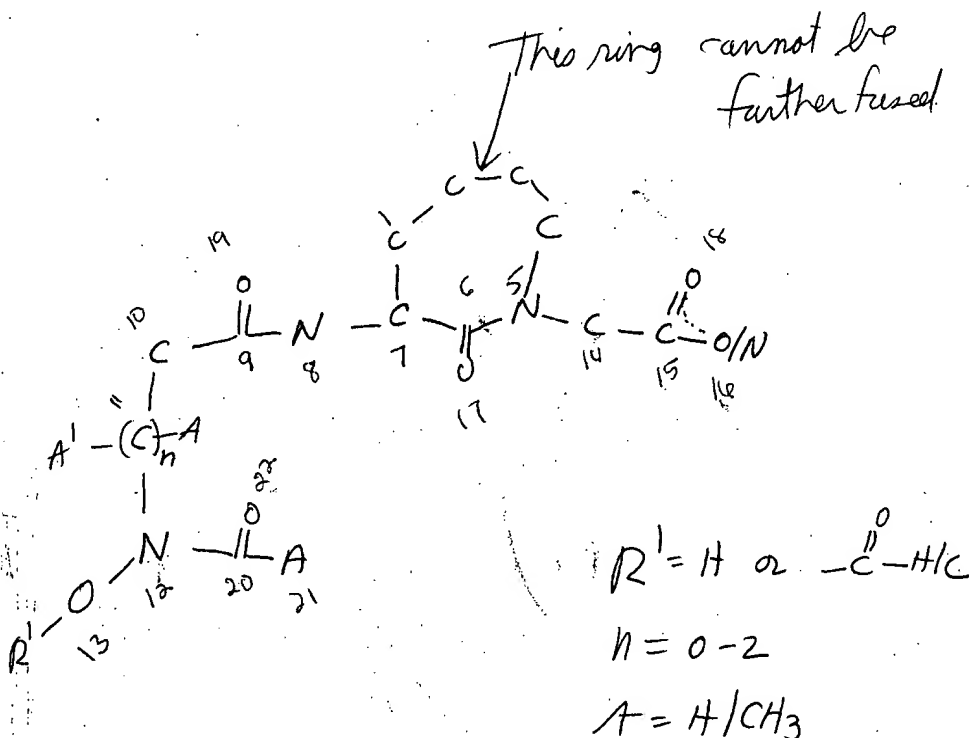 This ring cannot be
further fused
C — C
C
C
19
18
O
6
5
O
10
C
N
C
N
C
C
O/N
9
8
7
O
14
15
16
17
11
A' — (C)n — A
22
O
N
A
O
12
20
21
R'
13
R' = H or — C — H/C
O
n = 0-2
A = H/CH3